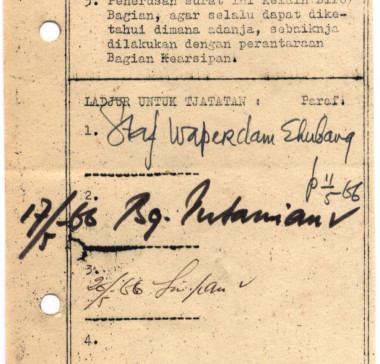 3. Penerusan surat ini kelain Biro/
Bagian, agar selalu dapat dike-
tahui dimana adanja, sebaiknja
dilakukan dengan perantaraan
Bagian Kearsipan.
LADJUR UNTUK TJATATAN : Paraf:
1. Staf Waperdam Ekubang
p 11/5-66
2.
17/5-66 Bg. Pertanian √
3.
20/5-66 Simpan √
4.